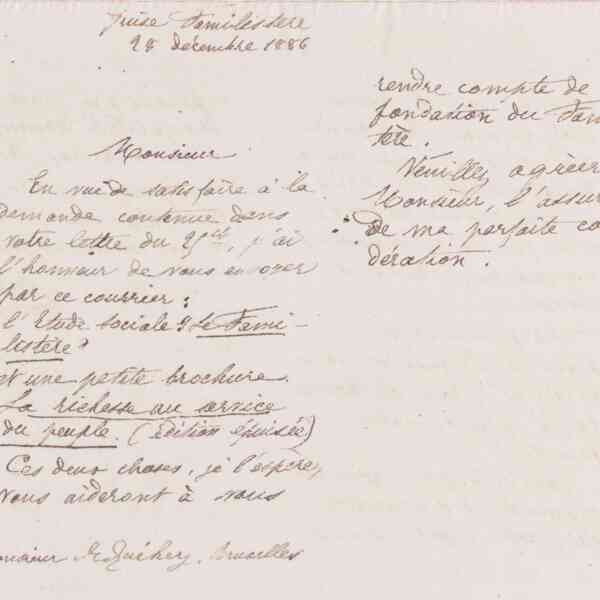 Guise Familistère
28 décembre 1886
Monsieur
En vue de satisfaire à la
demande contenue dans
votre lettre du 25 ct, j'ai
l'honneur de vous envoyer
par ce courrier :
l'Etude sociale : Le Fami-
listère
et une petite brochure.
La richesse au service
du peuple. (édition épuisée)
Ces deux choses, je l'espère,
vous aideront à vous
Bruxelles
rendre compte de
fondation du Fam
tère.
Veuillez agréer
Monsieur, l'assur
de ma parfaite co
dération.